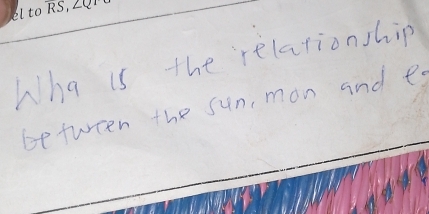 el to RS,
Wha is the relationship
between the sun, mon and